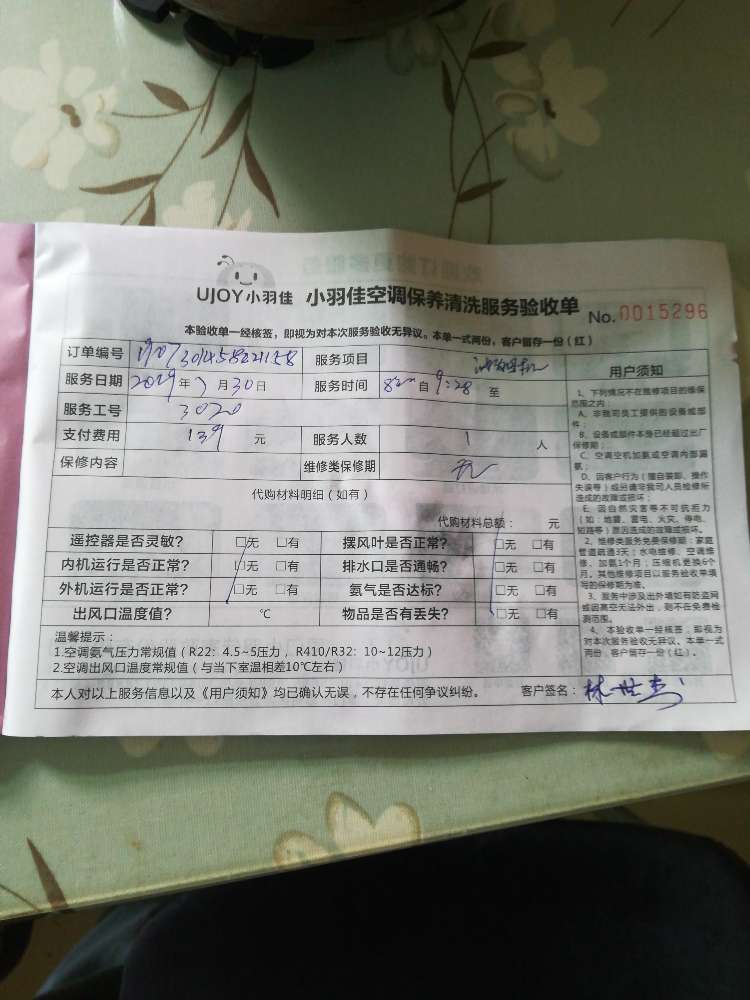 UJOY小羽佳 小羽佳空调保养清洗服务验收单 No.0015296
本验收单一经核签，即视为对本次服务验收无异议。本单一式两份，客户留存一份（红）
订单编号 服务项目
服务日期 2019年7月30日 服务时间 自9:28至
服务工号 3020
支付费用 139 元 服务人数 1 人
保修内容 维修类保修期 无
代购材料明细（如有）
代购材料总额： 元
遥控器是否灵敏？ □无 □有 摆风叶是否正常？ □无 □有
内机运行是否正常？ □无 □有 排水口是否通畅？ □无 □有
外机运行是否正常？ □无 □有 氨气是否达标？ □无 □有
出风口温度值？ ℃ 物品是否有丢失？ □无 □有
温馨提示：
1.空调氨气压力常规值（R22：4.5~5压力，R410/R32：10~12压力）
2.空调出风口温度常规值（与当下室温相差10℃左右）
本人对以上服务信息以及《用户须知》均已确认无误，不存在任何争议纠纷。 客户签名：林世杰
用户须知
1、下列情况不在维修项目的维保
范围之内：
A、非我司员工提供的设备或部
件；
B、设备或部件本身已经超过出厂
保修期；
C、空调空机加氨或空调内部漏
氨；
D、因客户行为（擅自装卸、操作
失误等）或另请非我司人员检修所
造成的故障或损坏；
E、因自然灾害等不可抗拒力
（如：地震、雷电、火灾、停电、
短路等）原因造成的故障或损坏。
2、维修类服务免费保修期：家庭
管道疏通3天；水电维修、空调维
修、加氨1个月；压缩机更换6个
月。其他维修项目以服务验收单填
写的保修期为准。
3、服务中涉及出外墙如有防盗网
或因高空无法外出，则不在免费检
测范围。
4、本验收单一经核签，即视为
对本次服务验收无异议。本单一式
两份，客户留存一份（红）。